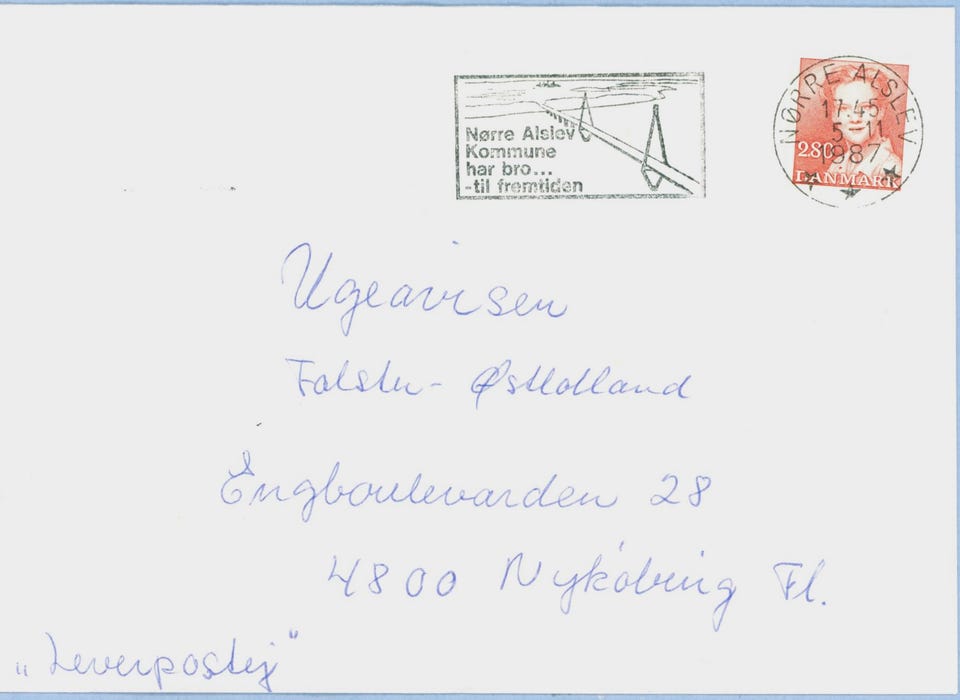 Nørre Alslev
Kommune
har bro...
-til fremtiden
NØRRE ALSLEV
17.45
5 11
1987
2.80
DANMARK
Ugeavisen
Falster- Østlolland
Engboulevarden 28
4800 Nykøbing Fl.
„Leverpostej"